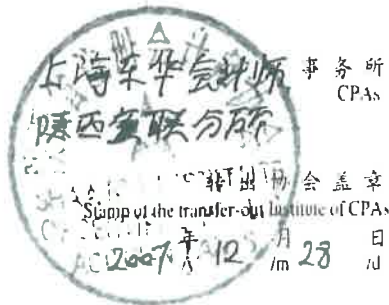 上海东华会计师事务所
CPAs
陕西宝联分所
转出协会盖章
Stamp of the transfer-out Institute of CPAs
2007年12月28日
/m /d